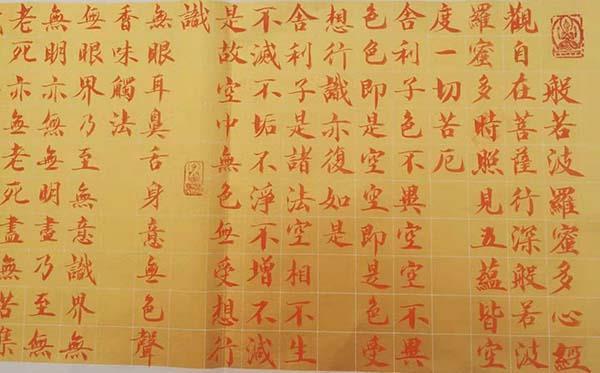 般若波羅蜜多心經
觀自在菩薩行深般若波
羅蜜多時照見五蘊皆空
度一切苦厄
舍利子色不異空空不異
色色即是空空即是色受
想行識亦復如是
舍利子是諸法空相不生
不滅不垢不淨不增不減
是故空中無色無受想行
識
無眼耳鼻舌身意無色聲
香味觸法
無眼界乃至無意識界無
無明亦無無明盡乃至無
老死亦無老死盡無苦集